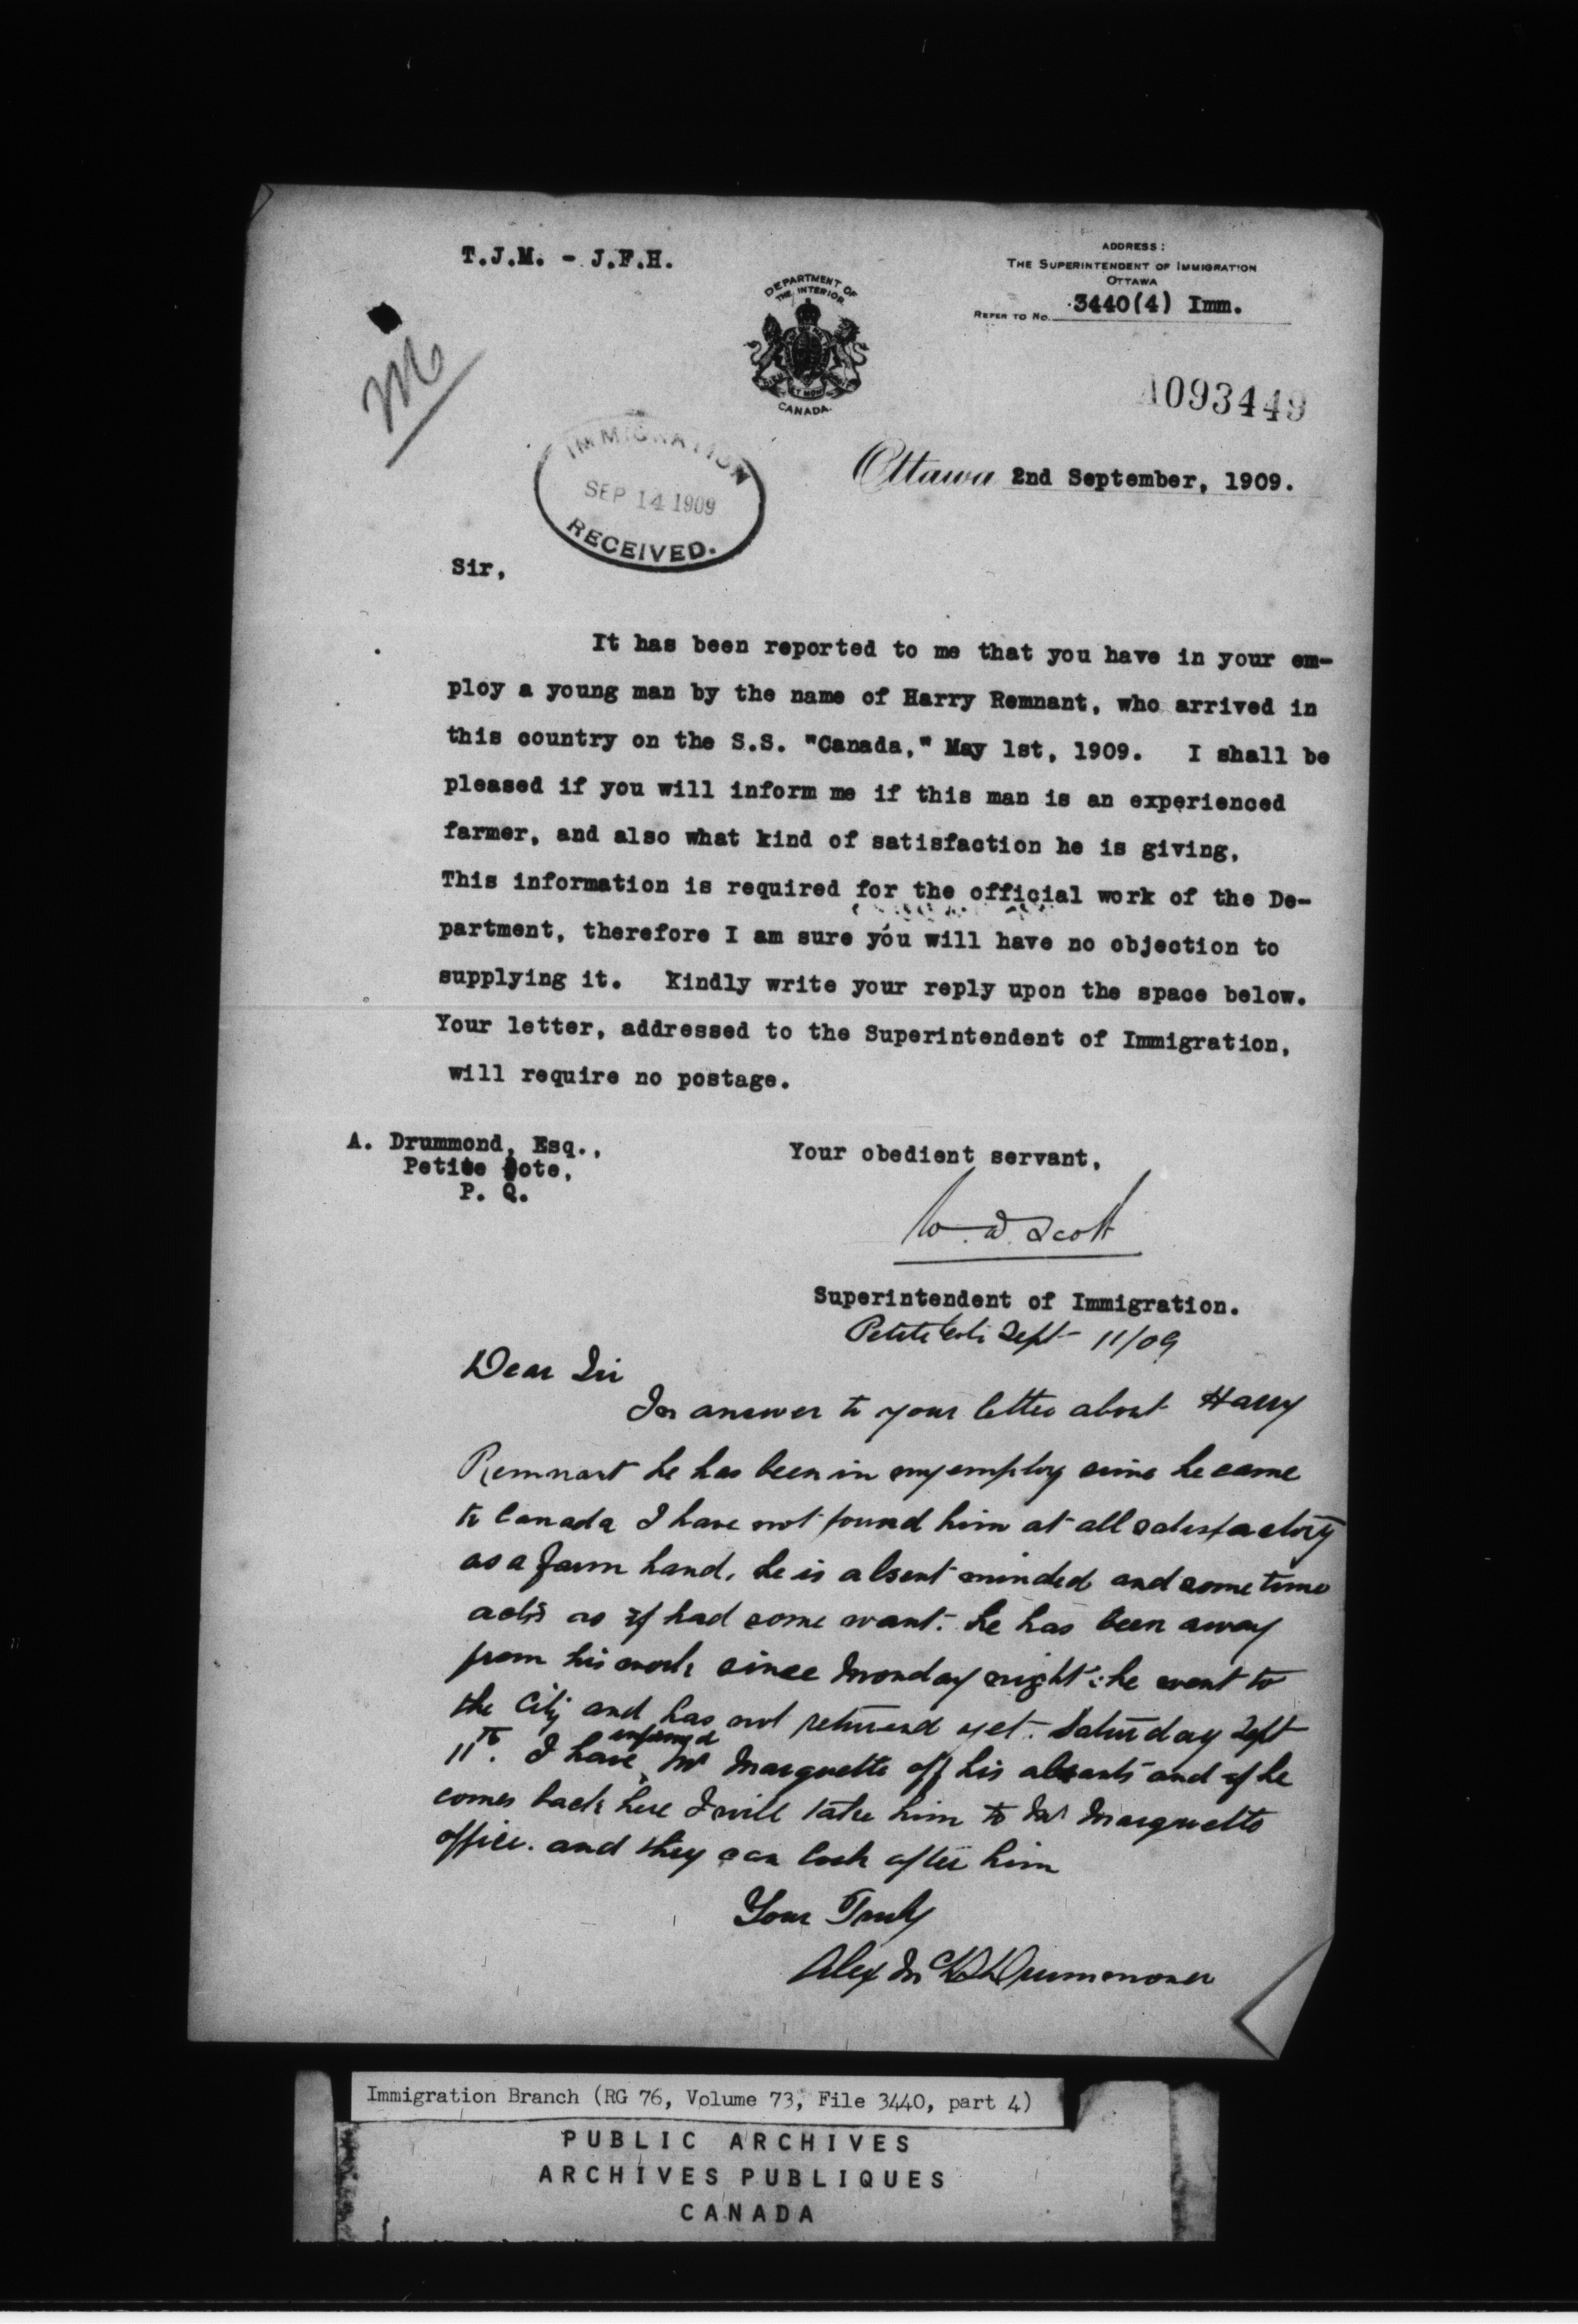 T.J.M. - J.F.H.
ADDRESS:
THE SUPERINTENDENT OF IMMIGRATION
OTTAWA
REFER TO NO. 3440(4) Imm.
DEPARTMENT OF
THE INTERIOR
CANADA
M
A093449
IMMIGRATION
SEP 14 1909
RECEIVED.
Ottawa 2nd September, 1909.
Sir,
It has been reported to me that you have in your em-
ploy a young man by the name of Harry Remnant, who arrived in
this country on the S.S. "Canada," May 1st, 1909. I shall be
pleased if you will inform me if this man is an experienced
farmer, and also what kind of satisfaction he is giving,
This information is required for the official work of the De-
partment, therefore I am sure you will have no objection to
supplying it. Kindly write your reply upon the space below.
Your letter, addressed to the Superintendent of Immigration,
will require no postage.
A. Drummond, Esq.,
Petite Cote,
P. Q.
Your obedient servant,
W. D. Scott
Superintendent of Immigration.
Petite Cote Sept 11/09
Dear Sir
In answer to your letter about Harry
Remnant he has been in my employ since he came
to Canada I have not found him at all satisfactory
as a farm hand, he is absent minded and some time
acts as if had some want. he has been away
from his work since Monday night: he went to
the City and has not returned yet. Saturday Sept
11th. I have informed Mr Marquette off his absants and if he
comes back here I will take him to Mr Marquetts
office. and they can look after him
Your Truly
Alex Mc D Drummond
Immigration Branch (RG 76, Volume 73, File 3440, part 4)
PUBLIC ARCHIVES
ARCHIVES PUBLIQUES
CANADA